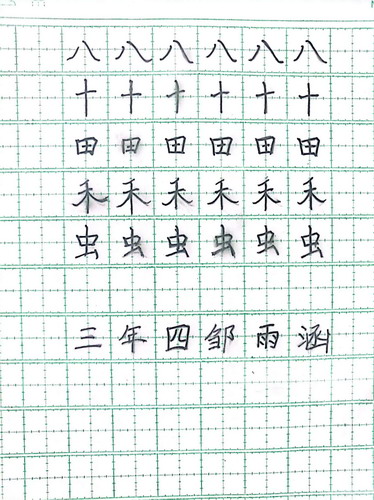 八八八八八八
十十十十十十
田田田田田田
禾禾禾禾禾禾
虫虫虫虫虫虫
三年四邹雨涵